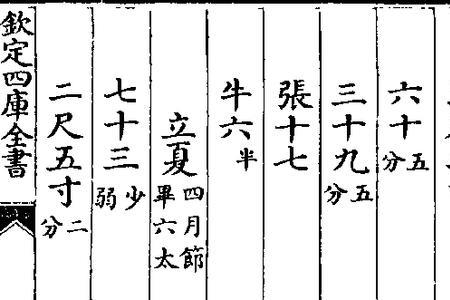 六十五分
三十九五分
張十七
牛六半
立夏四月節畢六太
七十三少弱
二尺五寸二分
欽定四庫全書